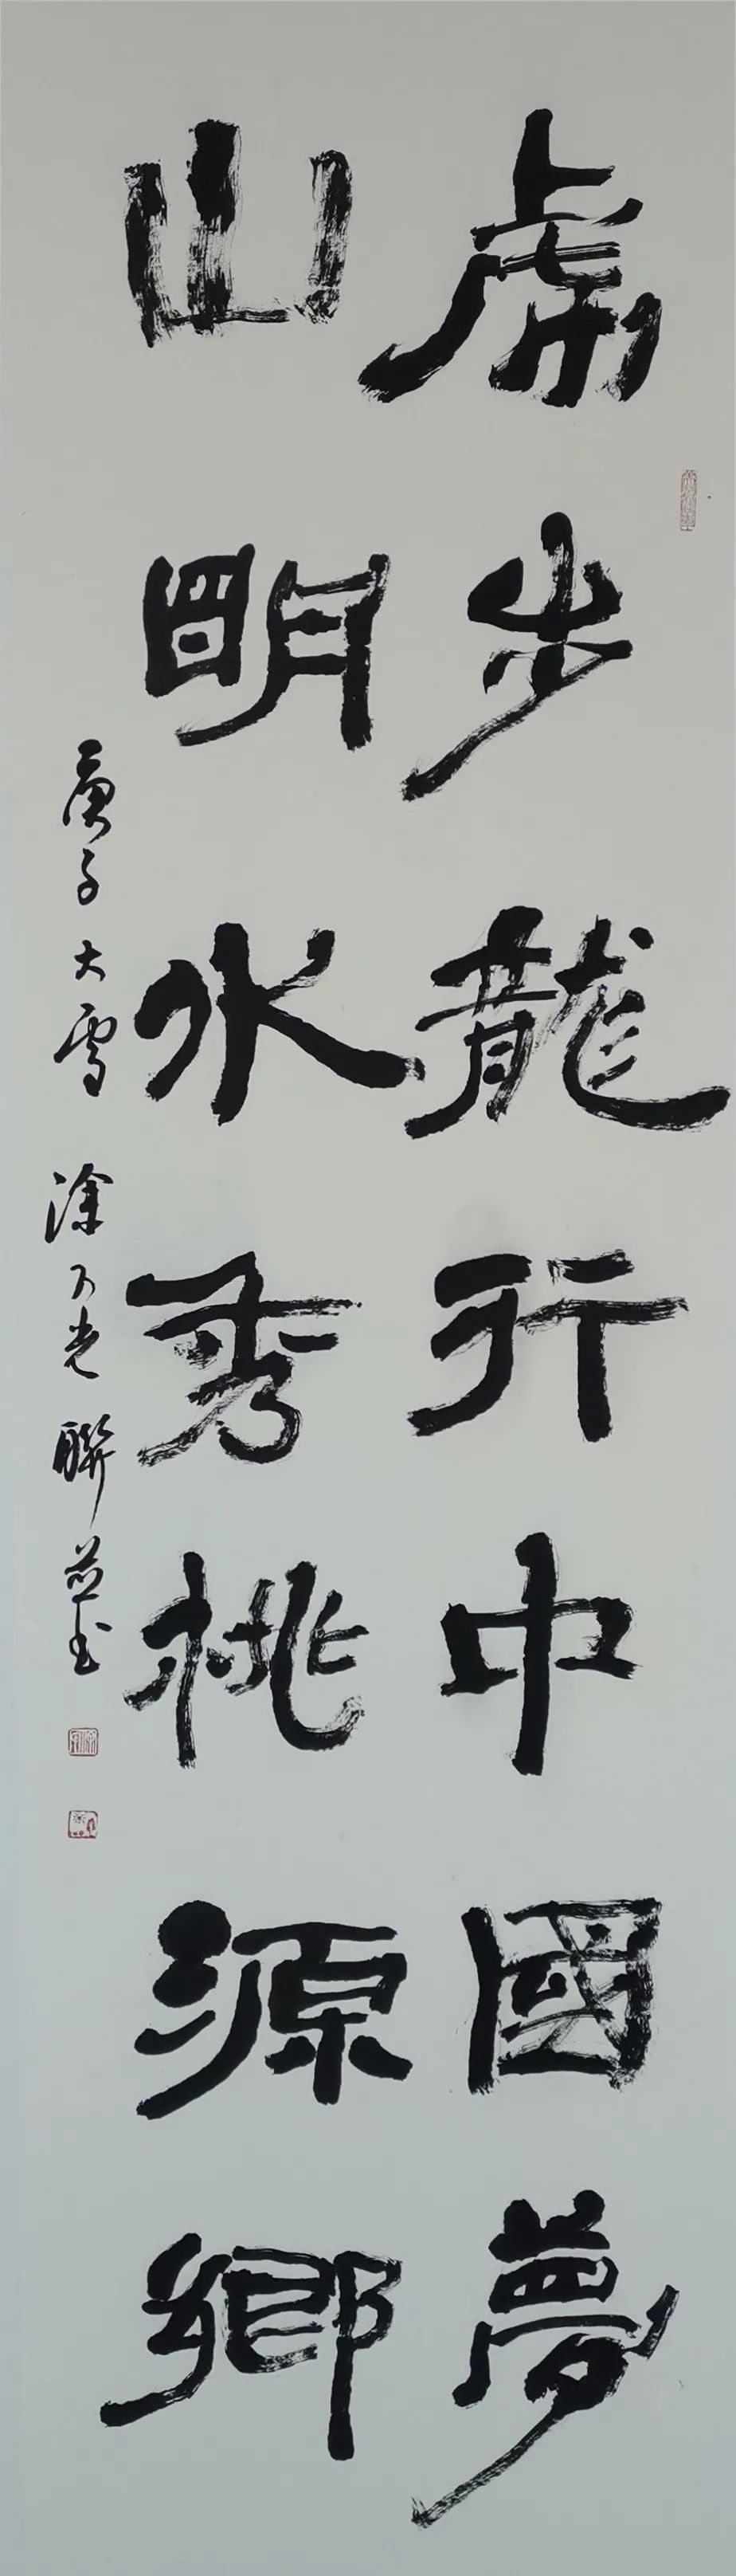 虎步龍行中國夢
山明水秀桃源鄉
庚子大雪 涂乃光聯並書